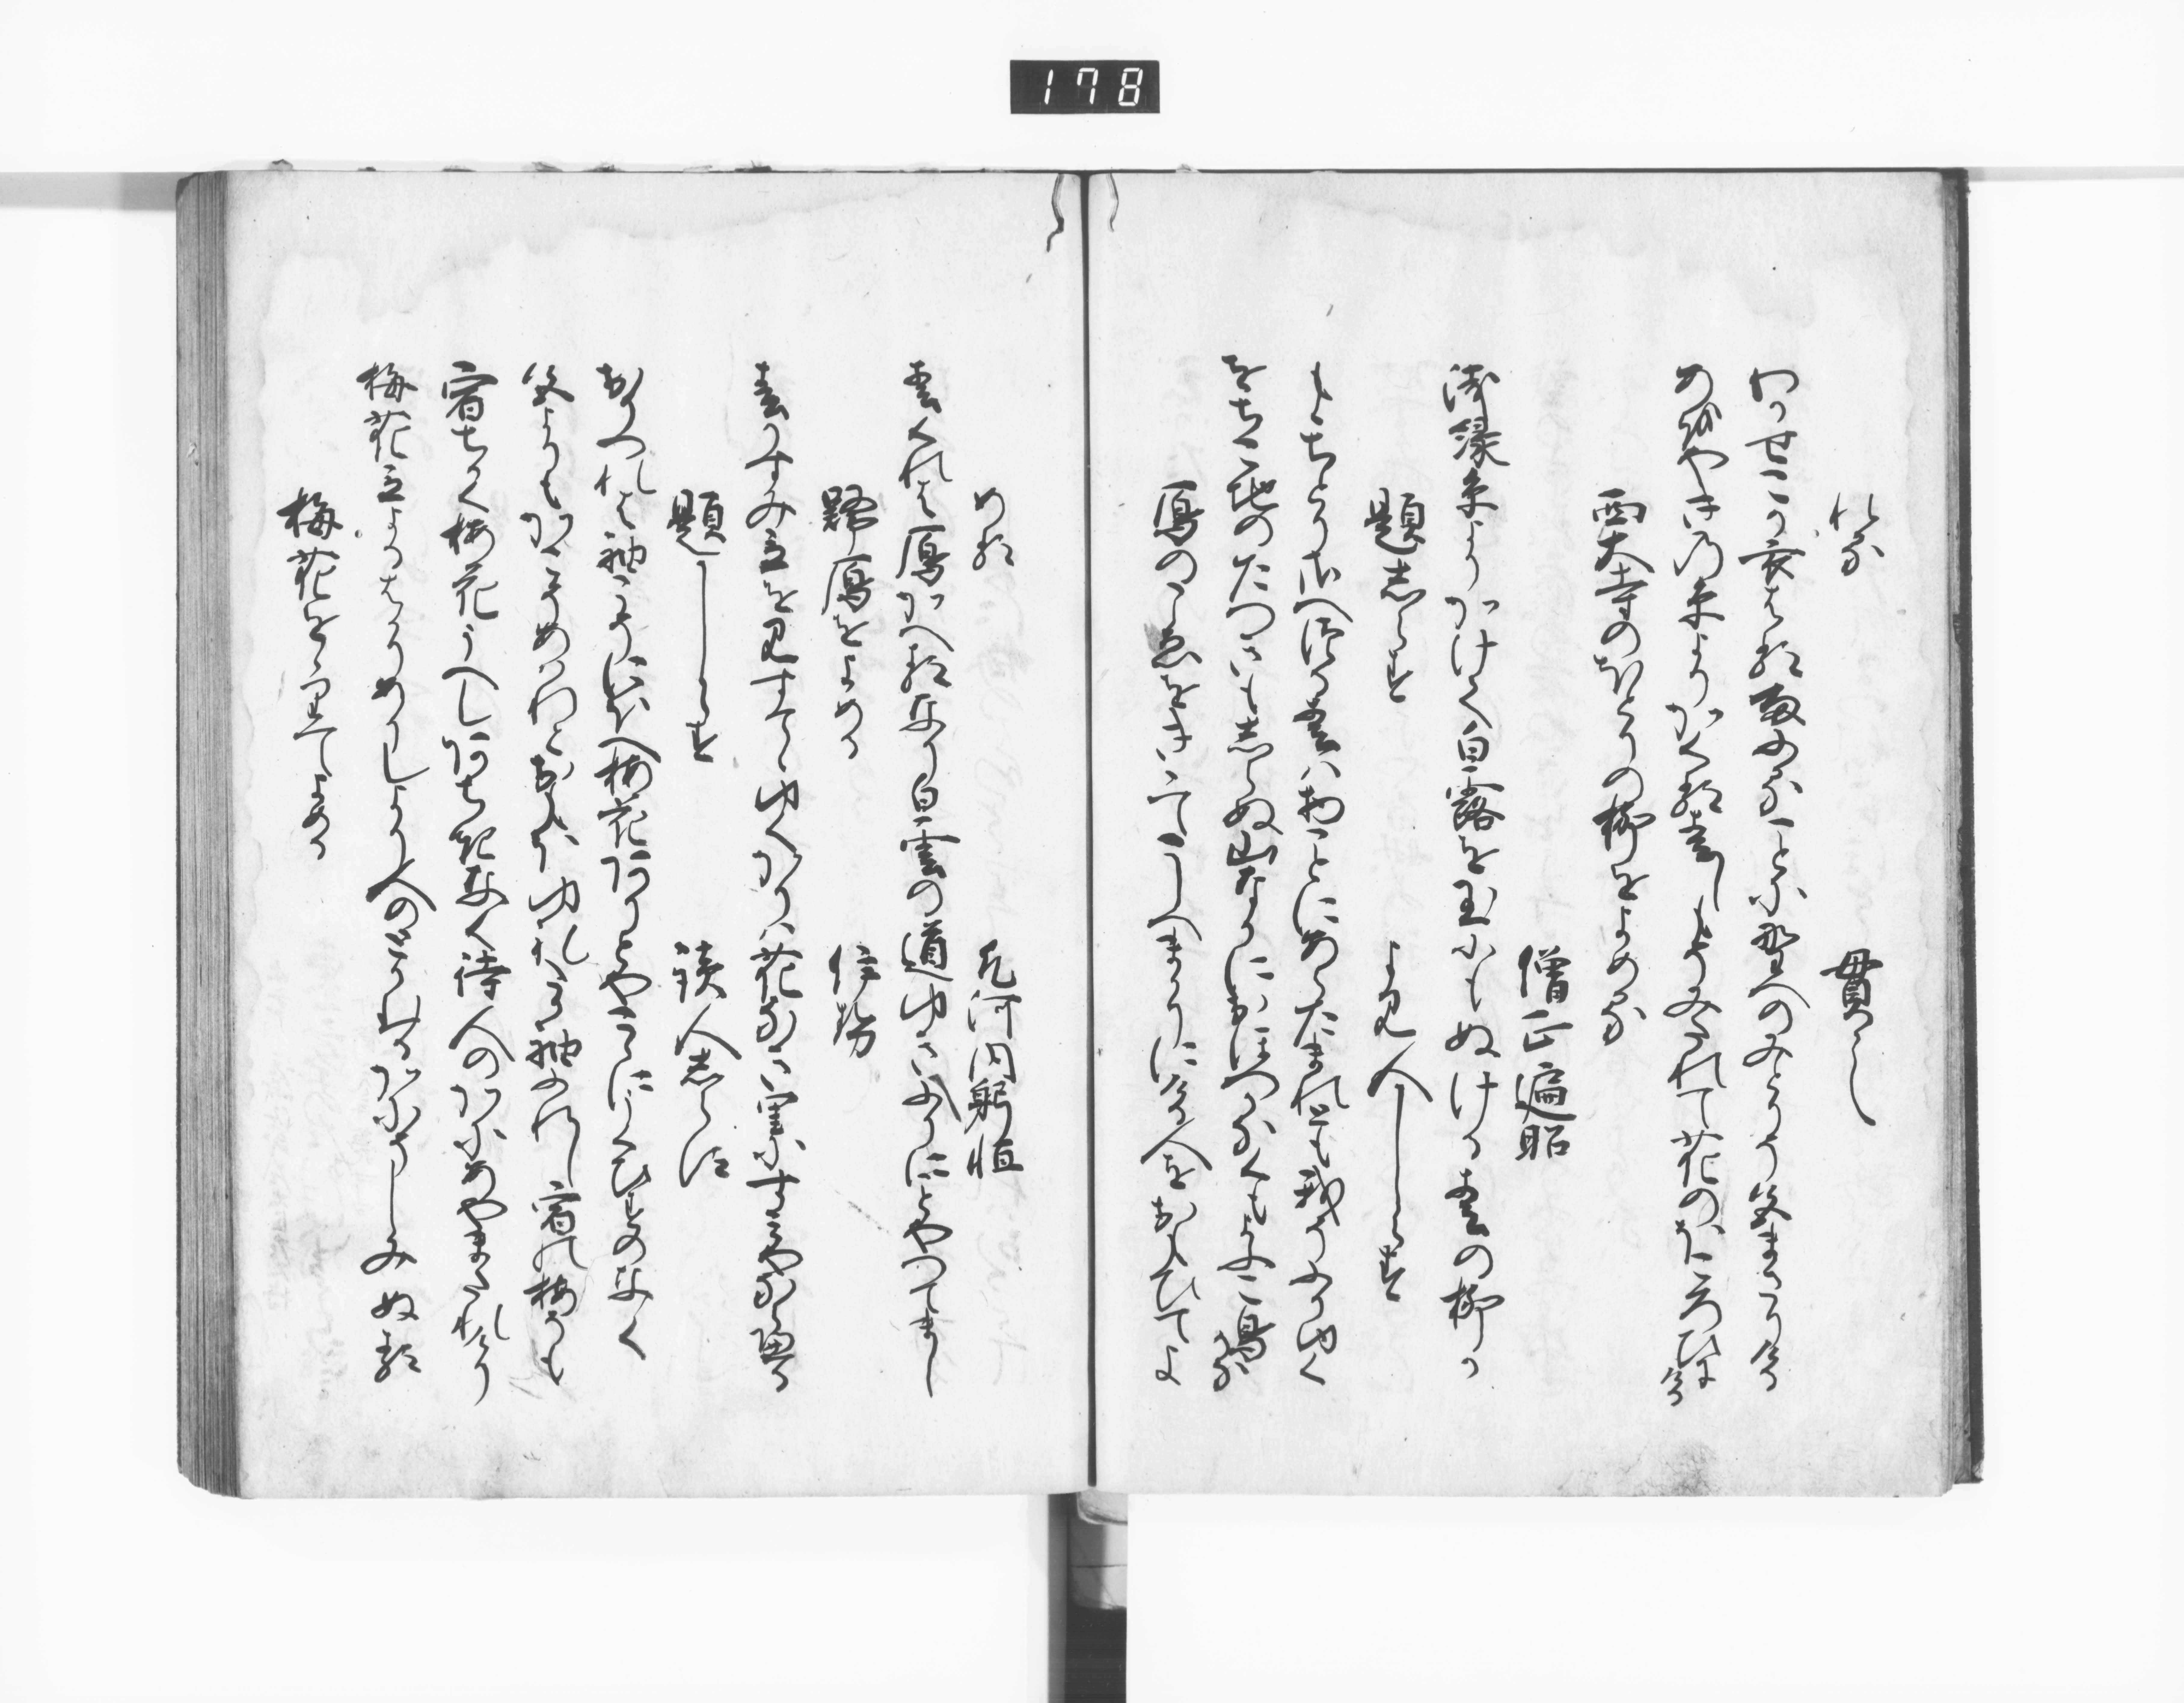 178
れる
貫之
わかせこか衣はる雨ふることに野へのみとりそ色まさりける
あをやきの糸よりかくる春しもそみたれて花のほころひにける
西大寺のほとりの柳をよめる
僧正遍昭
浅緑糸よりかけて白露を玉にもぬける春の柳か
題しらす
よみ人しらす
もゝちとりさへつる春は物ことにあらたまれとも我そふりゆく
をちこちのたつきもしらぬ山なかにおほつかなくもよふこ鳥哉
雁のこゑをきゝてこしへまかりにける人をおもひてよ
める
凡河内躬恒
春くれは雁かへるなり白雲の道ゆきふりにことやつてまし
帰雁をよめる
伊勢
春かすみ立を見すてゝゆくかりは花なき里にすみやならへる
題しらす
読人しらす
おりつれは袖こそにほへ梅花有とやこゝにうくひすのなく
色よりもかこそあはれとおもほゆれたか袖ふれし宿の梅そも
宿ちかく梅花うへしあちきなく待人のかにあやまたれけり
梅花立よるはかりありしより人のとかむるかにそしみぬる
梅花をおりてよめる